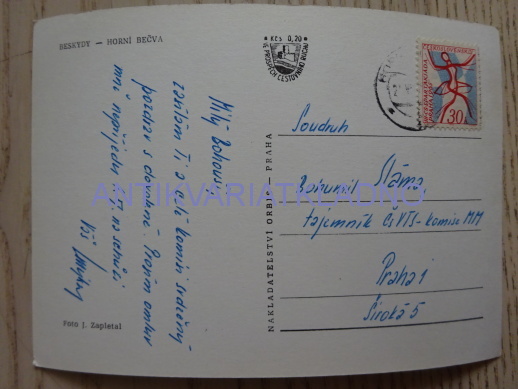 BESKYDY — HORNÍ BEČVA
Kčs 0,20
VE PROSPĚCH CESTOVNÍHO RUCHU
ČESKOSLOVENSKO
30h
Milý Bohouši
zasílám Ti a celé komisi srdečný
pozdrav s dovolené. Prosím omluv
mně nepřijedu
Váš
Foto J. Zapletal
NAKLADATELSTVÍ ORBIS — PRAHA
Soudruh
Bohumil Sláma
tajemník ČVTS-komise MM
Praha 1
Široká 5
ANTIKVARIATKLADNO